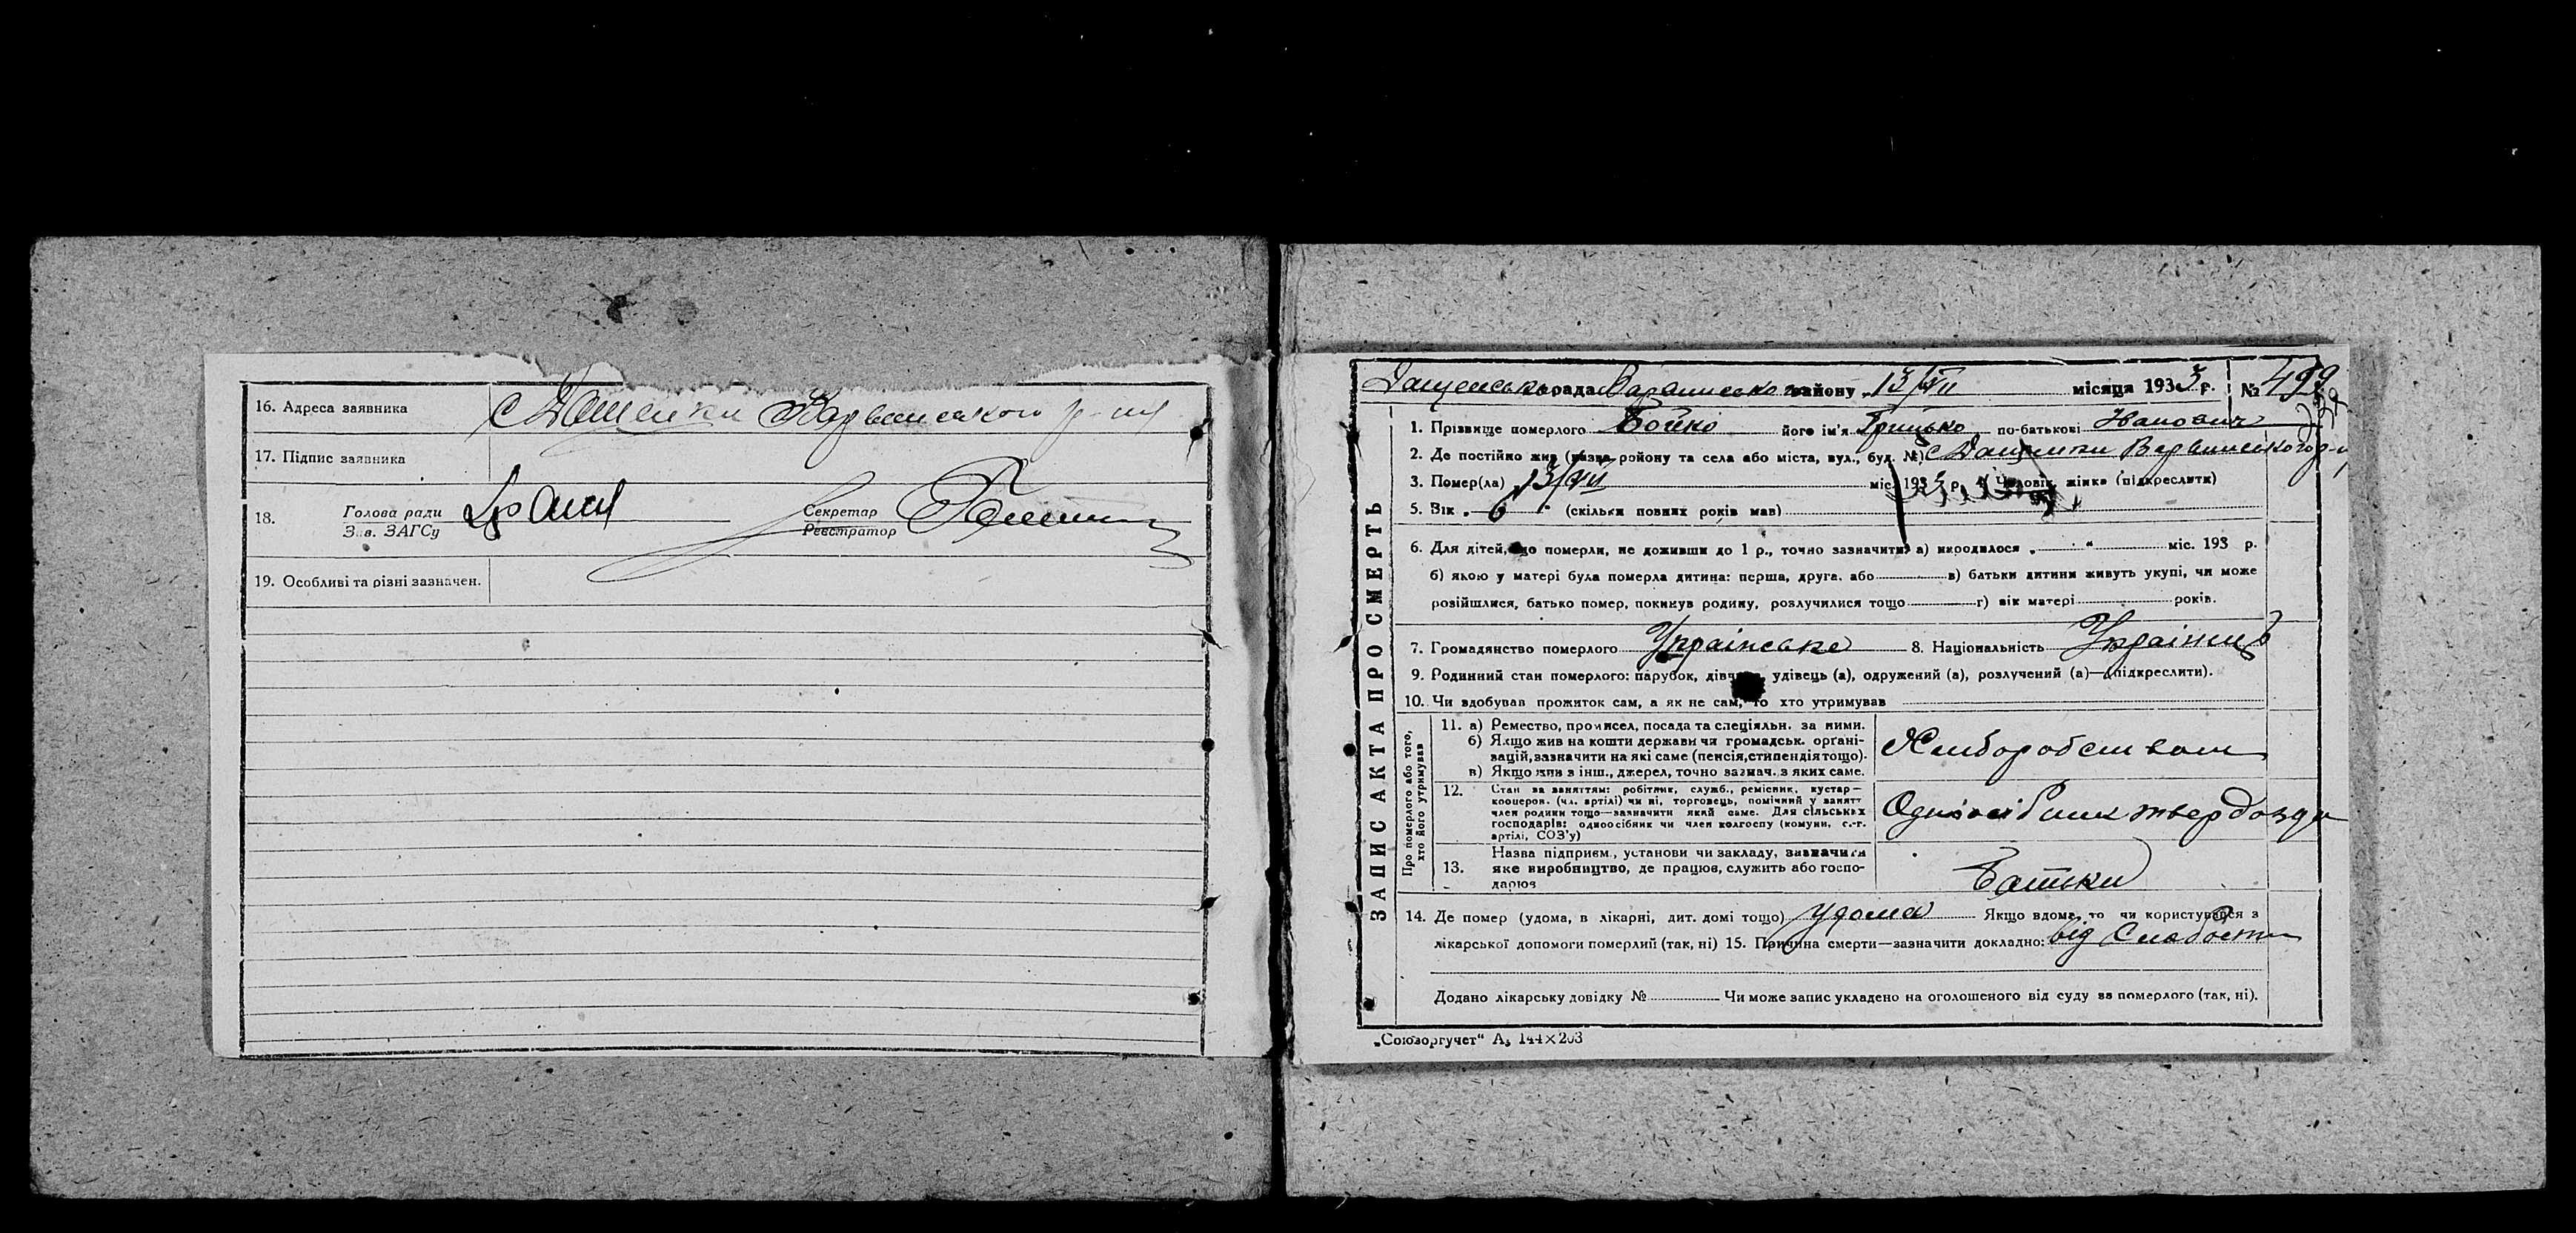 16. Адреса заявника с Дащенки Варвинського р-ну
17. Підпис заявника
18. Голова ради Секретар
Зав. ЗАГСу Реєстратор
19. Особливі та різні зазначен.
ЗАПИС АКТА ПРО СМЕРТЬ
Дащенська рада Варвинського району 13/VII місяця 1933 р. № 499
1. Прізвище померлого Бойко його ім'я Грицько по-батькові Иванович
2. Де постійно жив (назва району та села або міста, вул., буд. №) с Дащенки Варвинського р-ну
3. Помер(ла) 13/VII міс. 1933 р. 4. Чоловік, жінка (підкреслити)
5. Вік „ 6 " (скільки повних років мав)
6. Для дітей, що померли, не доживши до 1 р., точно зазначити: а) народилося „ " міс. 193 р.
б) якою у матері була померла дитина: перша, друга, або в) батьки дитини живуть укупі, чи може
розійшлися, батько помер, покинув родину, розлучилися тощо г) вік матері років.
7. Громадянство померлого Українське 8. Національність Українець
9. Родинний стан померлого: парубок, дівчина, удівець (а), одружений (а), розлучений (а)—(підкреслити).
10. Чи здобував прожиток сам, а як не сам, то хто утримував
Про померлого або того, хто його утримував
11. а) Ремество, промисел, посада та спеціяльн. за ними.
б) Якщо жив на кошти держави чи громадськ. органі-
зацій, зазначити на які саме (пенсія, стипендія тощо).
в) Якщо жив з інш., джерел, точно зазнач. з яких саме.
Хлиборобством
12. Стан за заняттям: робітник, служб., ремісник, кустар—
кооперов. (чл. артілі) чи ні, торговець, помічний у занятт
член родини тощо—зазначити який саме. Для сільських
господарів: одноосібник чи член колгоспу (комуни, с.-г.
артілі, СОЗ'у)
Одноосібник твердозда
13. Назва підприєм., установи чи закладу, зазначити
яке виробництво, де працює, служить або госпо-
дарює
Батьки
14. Де помер (удома, в лікарні, дит. домі тощо) удома Якщо вдома, то чи користувався з
лікарської допомоги померлий (так, ні) 15. Причина смерти—зазначити докладно: від Слабости
Додано лікарську довідку № Чи може запис укладено на оголошеного від суду за померлого (так, ні).
„Союзоргучет" А₅ 144×203